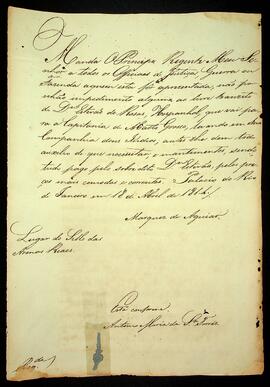 Manda O Principe Regente Meu Se-
nhor a todos os Officiaes de Justiça Guerra ou
Fazenda a quem esta for apresentada, não po-
nhão impedimento algum ao livre transito
de Dn. Estevão de Rosas, Hespanhol, que vai pa-
ra a Capitania de Matto Grosso, levando em sua
Companhia dous Indios, antes lhe dem todo
auxilio de que necessitar, e mantimentos, sendo
tudo pago pelo sobredito Dn. Estevão, pelos pre-
ços mais comodos e correntes. Palacio do Rio
de Janeiro em 18 de Abril de
Marquez de Aguiar
Lugar do Sello das
Armas Reaes.
Está conforme
Antonio Maria da